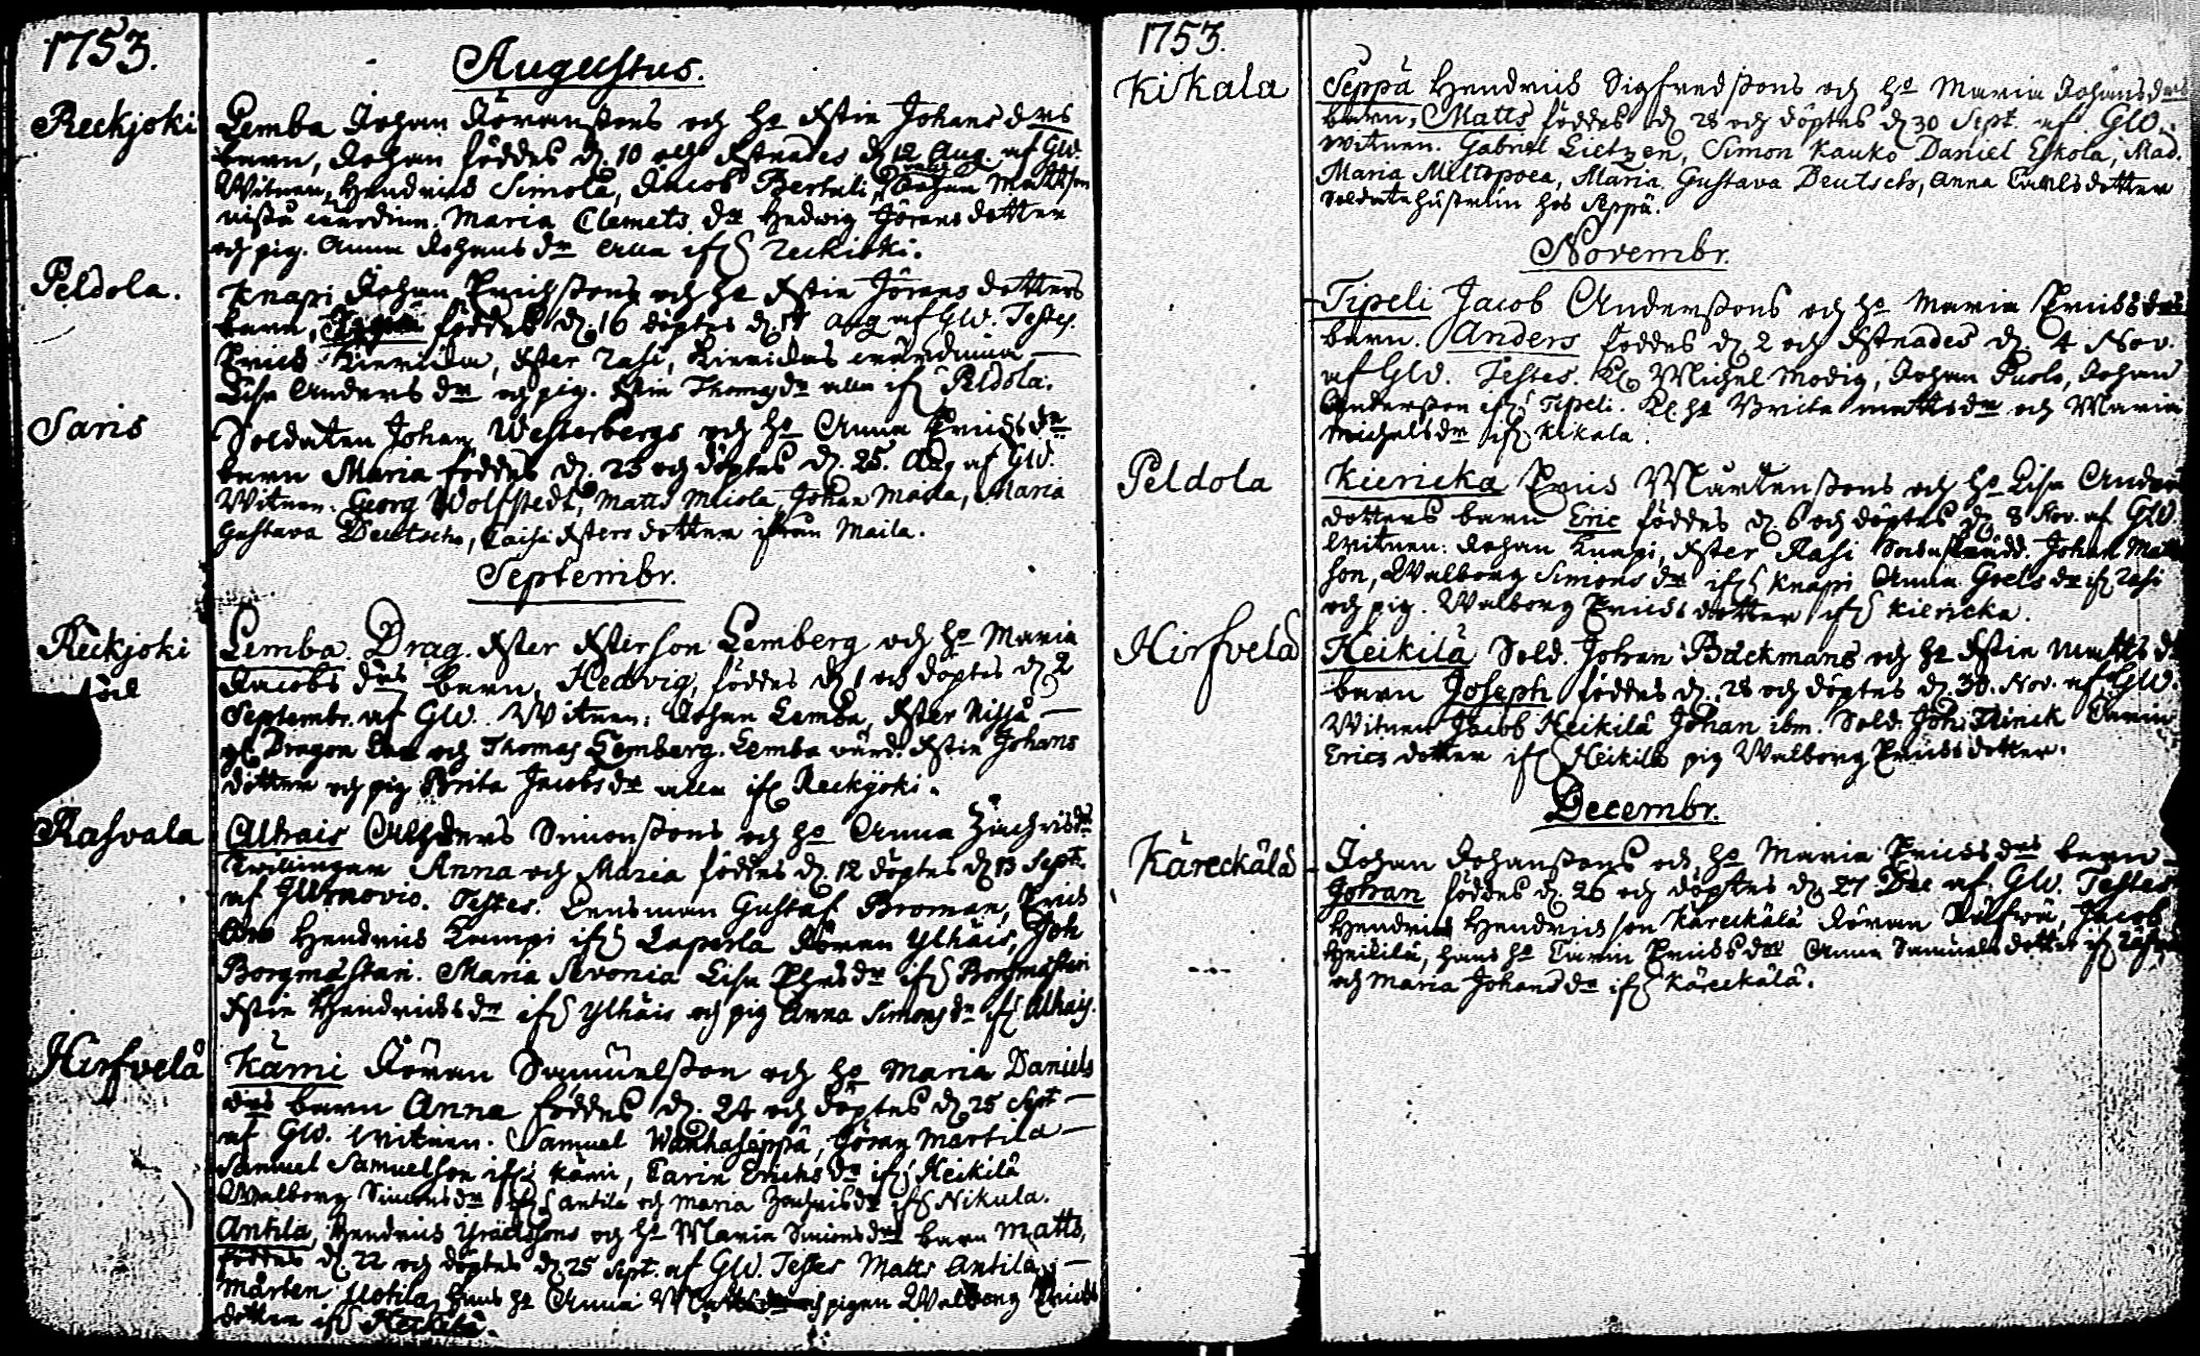 1753.
Augustus.
Reckjoki
Lemba Johan Jöranssons och h. Stin Johansdrs
barn, Johan föddes d. 10 och döptes d. 12 Aug. af GW.
Wittnen, Hendrich Simola, Jacob Bertuli, Johan Mattson
Maria Clemets dr Hedwig Jörans dotter
och pig. Anna Johans dr alla if. Reckioki.
Peldola.
Knapi Johan Erichssons och h. Stin Jörans dotters
barn, föddes d. 16 döptes d. Aug af GW. Testes.
Erich Kiericka, Rasi, Kierickas
Lisa Anders dr och pig. Stin Thomsdr alla if. Peldola.
Saris
Soldaten Johan Westerbergs och h. Anna Erichsdr
barn Maria föddes d. 23 och döptes d. 25. Aug af GW.
Wittnen. Georg Wolfstedt, Matts Meiola, Johan Maila, Maria
Gustava Deutsch, Caisa dotter ifrån Maila.
Septembr.
Reckjoki
Lemba Drag. Lemberg och h. Maria
Jacobs drs barn, Hedvig, föddes d. 1 och döptes d. 2
Septembr. af GW. Wittnen: Johan Lemba, Nissa
Dragon och Thomas Lemberg. Lemba värd. Stin Johans
dotter och pig Brita Jacobs dr alla if. Reckjoki.
Rasvala
Alhais Anders Simonssons och h. Anna Zachrisdrs
Tvillingar Anna och Maria föddes d. 12 döptes d. 13 Sept.
af Testes. Lensman Gustaf Broman, Erich
Hendrich Lampi if. Laperla Jöran Ylhäis, Joh
Borgmästari. Maria Aevonia Lisa dr if. Borgmästari
Stin Hendrichs dr if. Ylhäis och pig Anna Simons dr if. Alhais.
Hirfvelä
Kämi Jöran Samuelsson och h. Maria Daniels
drs barn Anna föddes d. 24 och döptes d. 25 Sept
af GW. Wittnen. Samuel Wanhaseppä, Göran Martila
Samuel Samuelson if. Kämi, Carin Erichs dr if. Heikilä
Walborg Simons dr if. Antila och Maria Zachris dr if. Nikula.
Antila, Hendrich och h. Maria Simons drs barn Matts,
föddes d. 22 och döptes d. 25 Sept. af GW. Testes Matts Antila,
Mårten hans h. Anna och pigan Walborg Erichs
dotter if. Heikilä.
1753.
Kikala
Seppä Hendrich Sigfredssons och h. Maria Johansdrs
barn, Matts föddes d. 28 och döptes d. 30 Sept. af GW.
Wittnen. Gabriel Lietzen, Simon Kauko Daniel Eskola, Mad.
Maria Meltopoea, Maria Gustava Deutsch, Anna Carlsdotter
Soldate hustrun hos Seppä.
Novembr.
Tipeli Jacob Anderssons och h. Maria Erichsdrs
barn. Anders föddes d. 2 och döptes d. 4 Nov.
af GW. Testes. Michel Modig, Johan Puolo, Johan
Andersson if. Tipeli. h. Brita Mattsdr och Maria
Michelsdr if. Kikala.
Peldola
Kiericka Erich Mårtenssons och h. Lisa Anders
dotters barn Eric föddes d. 6 och döptes d. 8 Nov. af GW.
Wittnen: Johan Knapi, Rasi Johan Matts
son, Walborg Simons dr if. Knapi Anna Goels dr if. Rasi
och pig. Walborg Erichs dotter if. Kiericka.
Hirfvelä
Heikilä Sold. Johan Bäckmans och h. Stin Matts dr
barn Joseph föddes d. 28 och döptes d. 30. Nov. af GW.
Wittnen Jacob Heikilä Johan ibm. Sold. Joh. Flinck Carin
Erics dotter if. Heikilä pig Walborg Erichsdotter.
Decembr.
Käreckälä
Johan Johanssons och h. Maria Erichs drs barn
Johan föddes d. 26 och döptes d. 27 Dec af GW. Testes
Hendrich Hendrichson Käreckälä Jöran Jacob
Heikilä, hans h. Carin Erichsdr Anna Samuels dotter if.
och Maria Johans dr if. Käreckälä.